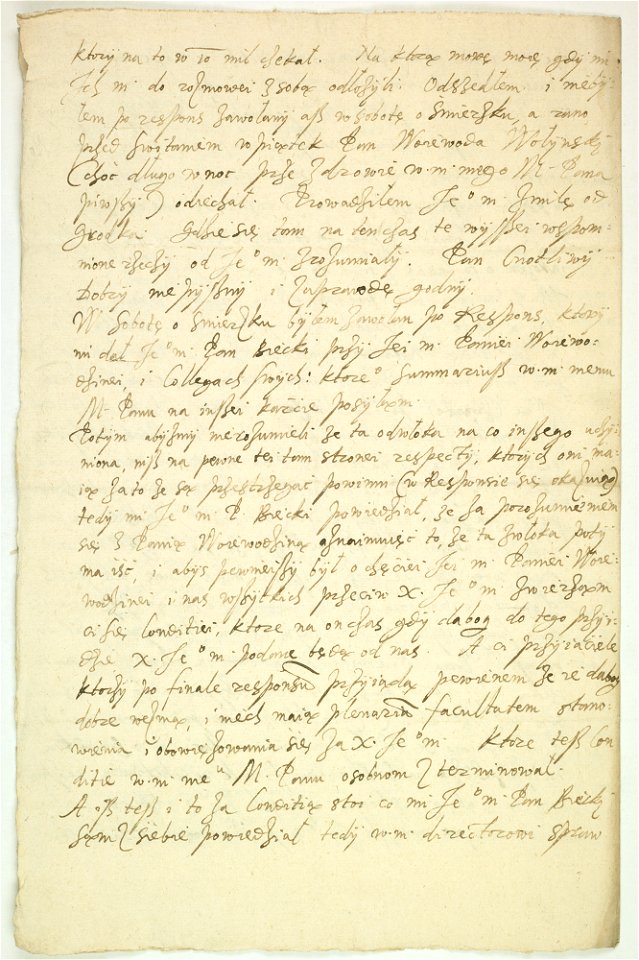 ktory na to w 10 mil czekał. Na ktorą mowę moię gdy mi
Ich m. do rozmowei z sobą odłozyli. Odszedłem i niebÿ
łem po respons zawołany asz w sobotę o zmierzku, a rano
przed switaniem w piątek Pan Woiewoda Wołynski
(choć długo w noc prze zdrowie w. m. mego M. Pana
piwszy) odiechał. Prowadziłem Je° m. z milę od
grodka. gdzie się tam na tenczas te wyssei wspom-
nione rzeczy od Je° m. zrozumiały. Pan Cnotliwy
Dobry niepyszny i zaprawdę godny.
W Sobotę o zmierzku byłem zawołan po Respons, ktory
mi dał Je° m. Pan Biecki przy Jei m. Paniei Woiewo-
dzinei, i Collegach swych: ktore° Summariusz w. m. memu
M. Panu na inszei karcie posyłam.
Potym abysmy nierozumieli ze ta odwłoka na co inszego uczy-
niona, nisz na pewne tei tam stronei respecty, ktorych oni ma-
ią za to ze są przestrzegać powinni (w Responsie się okazuią)
tedy mi Je° m. P. Biecki powiedział, ze za porozumieniem
się z Panią Woiewodziną oznaimuięć to, ze ta zwłoka poty
ma isć, i abys pewnieiszy był o chęciei Jei m. Paniei Woie-
wodzinei i nas wszytkich przeciw X. Je° m. zwierzam
ci się Conditiei, ktore na on czas gdy dabog do tego przyi-
dzie X. Je° m. podane będą od nas. A ci przyiaciele
ktorzy po finale responsum przyiadą pewienem ze ie dabog
dobrze wezmą, i niech maią plenariam facultatem stano-
wienia i obowięzowania się za X. Je° m. Ktore tesz Con
ditie w. m. me<sup>u</sup> M. Panu osobnom zterminował.
A isz tesz i to za Conditią stoi co mi Je° m. Pan Biecki
sąm z siebie powiedział tedy w. m. directorowi spraw